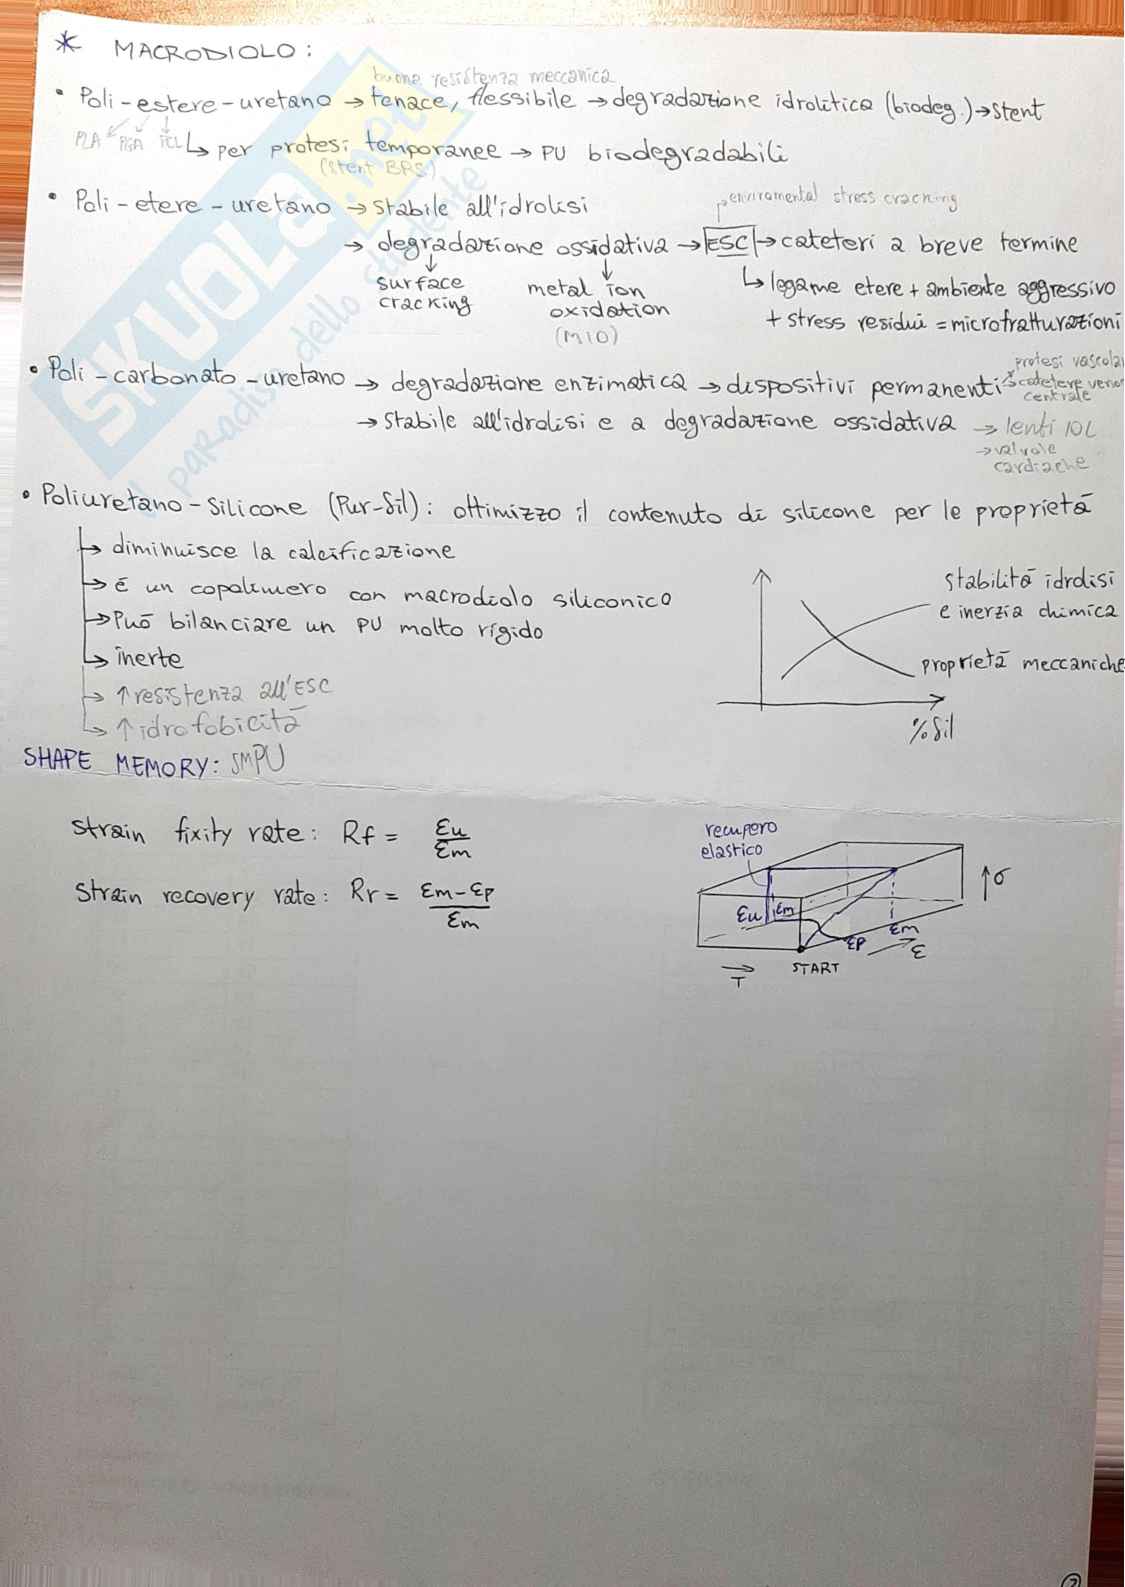 * MACRODIOLO:
buona resistenza meccanica
• Poli-estere-uretano → tenace, flessibile → degradazione idrolitica (biodeg.) → stent
PLA PGA PCL ↳ per protesi temporanee → PU biodegradabili
(stent BRS)
• Poli-etere-uretano → stabile all'idrolisi
enviromental stress cracking
→ degradazione ossidativa → ESC → cateteri a breve termine
surface cracking
metal ion oxidation
(MIO)
↳ legame etere + ambiente aggressivo
+ stress residui = microfratturazioni
protesi vascolar
• Poli-carbonato-uretano → degradazione enzimatica → dispositivi permanenti → catetere venos
centrale
→ stabile all'idrolisi e a degradazione ossidativa → lenti IOL
→ valvole
cardiache
• Poliuretano-Silicone (Pur-Sil): ottimizzo il contenuto di silicone per le proprietà
→ diminuisce la calcificazione
→ é un copolimero con macrodiolo siliconico
→ Può bilanciare un PU molto rigido
↳ inerte
→ ↑ resistenza all'ESC
↳ ↑ idrofobicità
stabilità idrolisi
e inerzia chimica
proprietà meccaniche
% Sil
SHAPE MEMORY: SMPU
Strain fixity rate: Rf = εu/εm
Strain recovery rate: Rr = εm-εp/εm
recupero
elastico
↑ σ
εu εm
εp εm
ε
START
T
SKUOLA.net
il paradiso dello studente
2